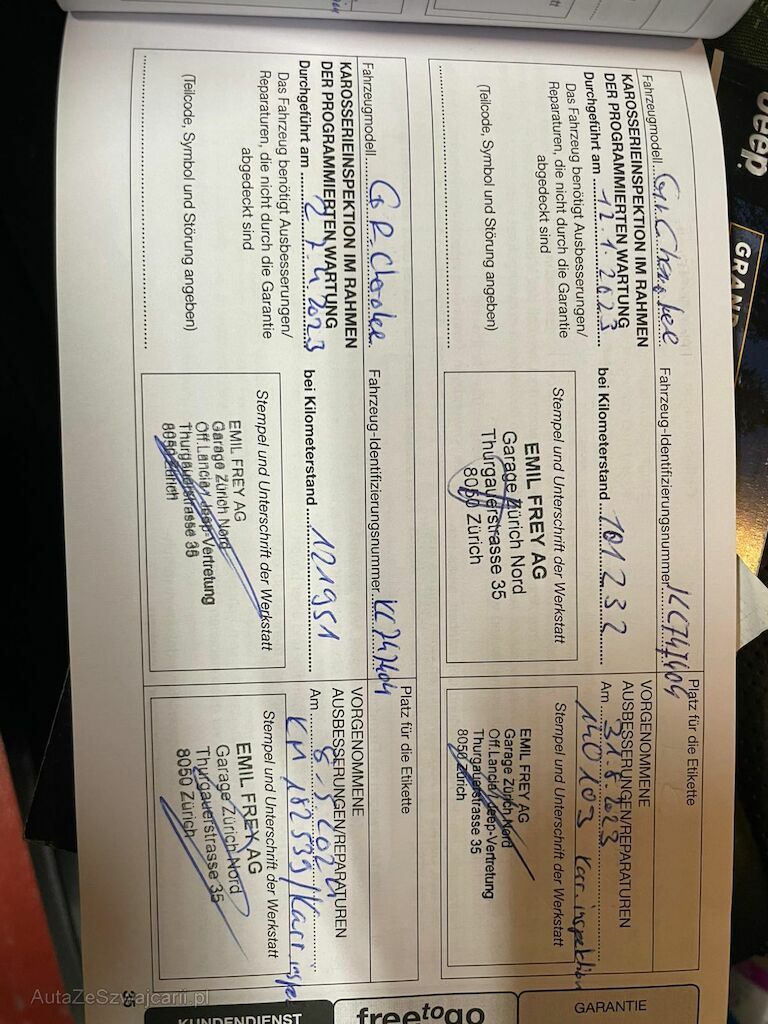 Fahrzeugmodell Gr. Cherokee Fahrzeug-Identifizierungsnummer KC747404
Platz für die Etikette
KAROSSERIEINSPEKTION IM RAHMEN
DER PROGRAMMIERTEN WARTUNG
Durchgeführt am 12.1.2023 bei Kilometerstand 101232
Das Fahrzeug benötigt Ausbesserungen/
Reparaturen, die nicht durch die Garantie
abgedeckt sind
(Teilcode, Symbol und Störung angeben)
Stempel und Unterschrift der Werkstatt
EMIL FREY AG
Garage Zürich Nord
Thurgauerstrasse 35
8050 Zürich
VORGENOMMENE
AUSBESSERUNGEN/REPARATUREN
Am 31.8.2023
140103 Kar. inspektion
Stempel und Unterschrift der Werkstatt
EMIL FREY AG
Garage Zürich Nord
Off.Lancia/Jeep-Vertretung
Thurgauerstrasse 35
8050 Zürich
Fahrzeugmodell GR. Cherokee Fahrzeug-Identifizierungsnummer KC747404
Platz für die Etikette
KAROSSERIEINSPEKTION IM RAHMEN
DER PROGRAMMIERTEN WARTUNG
Durchgeführt am 27.4.2023 bei Kilometerstand 121951
Das Fahrzeug benötigt Ausbesserungen/
Reparaturen, die nicht durch die Garantie
abgedeckt sind
(Teilcode, Symbol und Störung angeben)
Stempel und Unterschrift der Werkstatt
EMIL FREY AG
Garage Zürich Nord
Off.Lancia/Jeep-Vertretung
Thurgauerstrasse 35
8050 Zürich
VORGENOMMENE
AUSBESSERUNGEN/REPARATUREN
Am 8.5.2024
KM 182539/Karr.inspe
Stempel und Unterschrift der Werkstatt
EMIL FREY AG
Garage Zürich Nord
Thurgauerstrasse 35
8050 Zürich
35
GARANTIE
freetogo
KUNDENDIENST
Jeep
GRAND
AutaZeSzwajcarii.pl